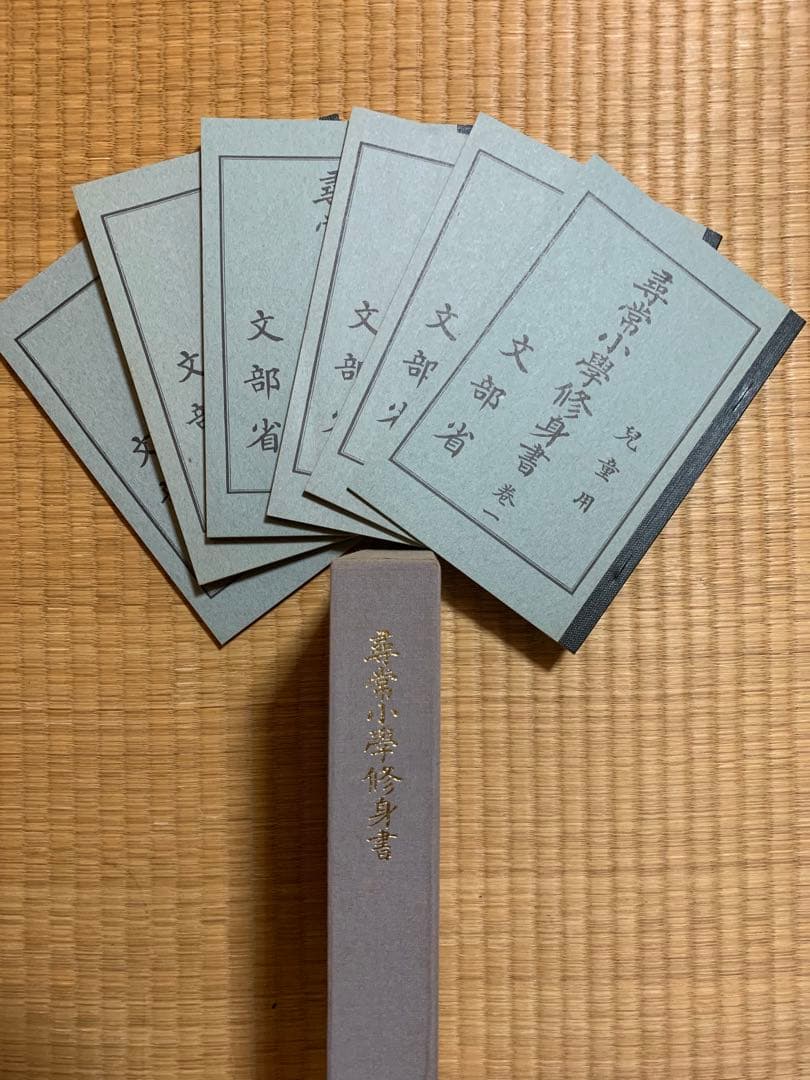 兒童用
尋常小學修身書 卷一
文部省
文部
文部
尋常
文部省
文部
文
尋常小學修身書